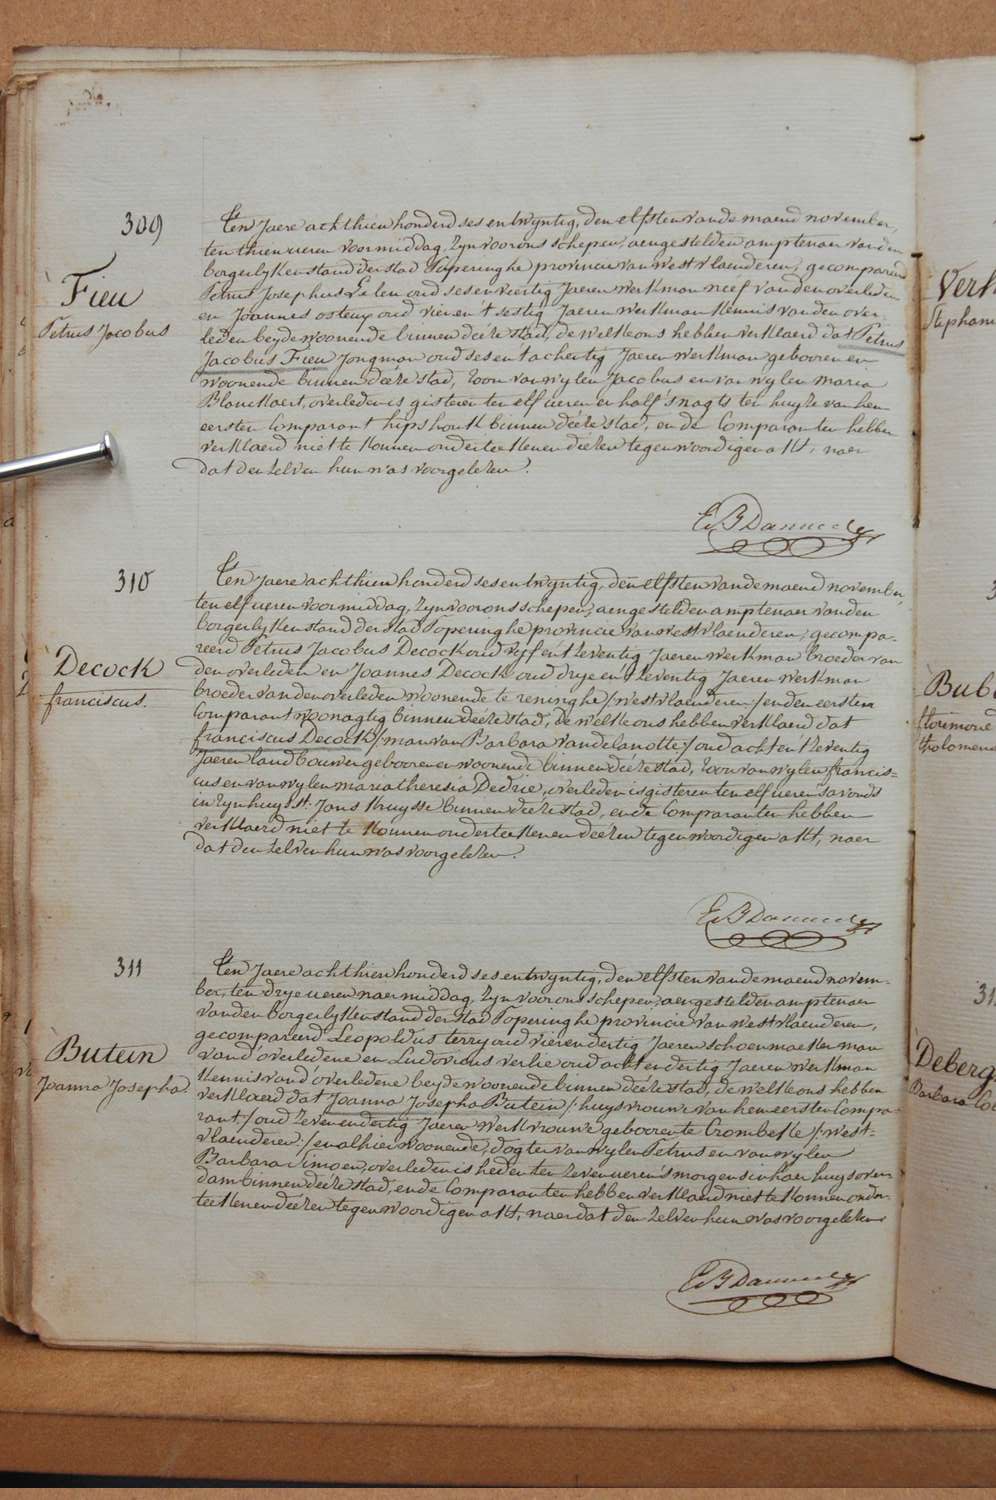 309
Fieu
Petrus Jacobus
Ten Jaere achthien honderd ses en twyntig, den elfsten van de maend november,
ten thien ueren voormiddag, zyn voor ons schepen, aengestelden amptenaer van den
borgerlyken stand der stad Poperinghe provincie van westvlaenderen, gecompareerd
Petrus Josephus oud ses en veertig Jaeren werkman neef van den overleden
en Joannes osteuy oud vier en t'sestig Jaeren werkman kennis van den over-
leden beyde woonende binnen deéze stad, de welke ons hebben verklaerd dat Petrus
Jacobus Fieu Jongman oud ses en t'achertig Jaeren werkman gebooren en
woonende binnen deéze stad, zoon van wylen Jacobus en van wylen maria
Blanckaert, overleden is gisteren ten elf ueren en half s'nagts ten huyze van hen
eersten Comparant hipshouk binnen deéze stad, en de Comparanten hebben
verklaerd niet te konnen onderteekenen deézen tegenwoordigen akt, naer
dat den zelven hun was voorgelezen.
310
Decock
franciscus.
Ten Jaere achthien honderd ses en twyntig, den elfsten van de maend november,
ten elf ueren voormiddag, zyn voor ons schepen, aengestelden amptenaer van den
borgerlyken stand der stad Poperinghe provincie van westvlaenderen, gecompa-
reerd Petrus Jacobus Decock oud vyf en t'zeventig Jaeren werkman broeder van
den overleden en Joannes Decock oud drye en t'zeventig Jaeren werkman
broeder van den overleden woonende te reninghe /westvlaenderen/ en den eersten
Comparant woonagtig binnen deéze stad, de welke ons hebben verklaerd dat
franciscus Decock /: man van Barbara Vandelanotte :/ oud acht en t'zeventig
Jaeren landbouwer gebooren en woonende binnen deéze stad, zoon van wylen francis-
cus en van wylen maria theresia Dedrie, overleden is gisteren ten elf ueren s'avonds
in zyn huys st. Jans kruysse binnen deéze stad, en de Comparanten hebben
verklaerd niet te konnen onderteekenen deézen tegenwoordigen akt, naer
dat den zelven hun was voorgelezen.
311
Butein
Joanna Josepha
Ten Jaere achthien honderd ses en twyntig, den elfsten van de maend novem-
ber, ten drye ueren naermiddag, zyn voor ons schepen, aengestelden amptenaer
van den borgerlyken stand der stad Poperinghe provincie van westvlaenderen,
gecompareerd Leopoldus terry oud vier en dertig Jaeren schoenmaeker man
van d'overledene en Ludovicus verlie oud acht en dertig Jaeren werkman
kennis van d'overledene beyde woonende binnen deéze stad, de welke ons hebben
verklaerd dat Joanna Josepha Butein /: huysvrouwe van hem eersten Compa-
rant :/ oud zeven en dertig Jaeren werkvrouwe gebooren te Crombeke /: west-
vlaenderen :/ en alhier woonende, dogter van wylen Petrus en van wylen
Barbara Simoen, overleden is heden ten zeven ueren s'morgens in haer huys over-
dam binnen deéze stad, en de Comparanten hebben verklaerd niet te konnen onder-
teekenen deézen tegenwoordigen akt, naer dat den zelven hun was voorgelezen
Verh
Stephan
Bub
florimond
tholomeus
31
Deberg
Barbara Co